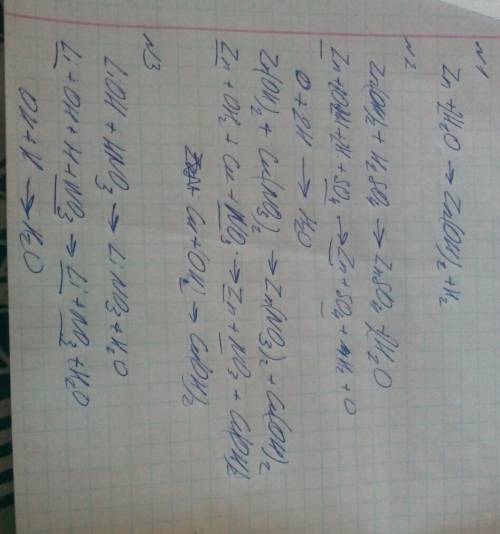 №1
Zn + H₂O → Zn(OH)₂ + H₂
№2
Zn(OH)₂ + H₂SO₄ → ZnSO₄ + H₂O
Zn + + H + SO₄ → Zn + SO₄ + + O
O + 2H → H₂O
Zn(OH)₂ + Cu(NO₃)₂ → Zn(NO₃)₂ + Cu(OH)₂
Zn + OH₂ + Cu + NO₃ → Zn + NO₃ + Cu(OH)₂
Cu + OH₂ → Cu(OH)₂
№3
LiOH + HNO₃ → LiNO₃ + H₂O
Li + OH + H + NO₃ → Li + NO₃ + H₂O
OH + H → H₂O